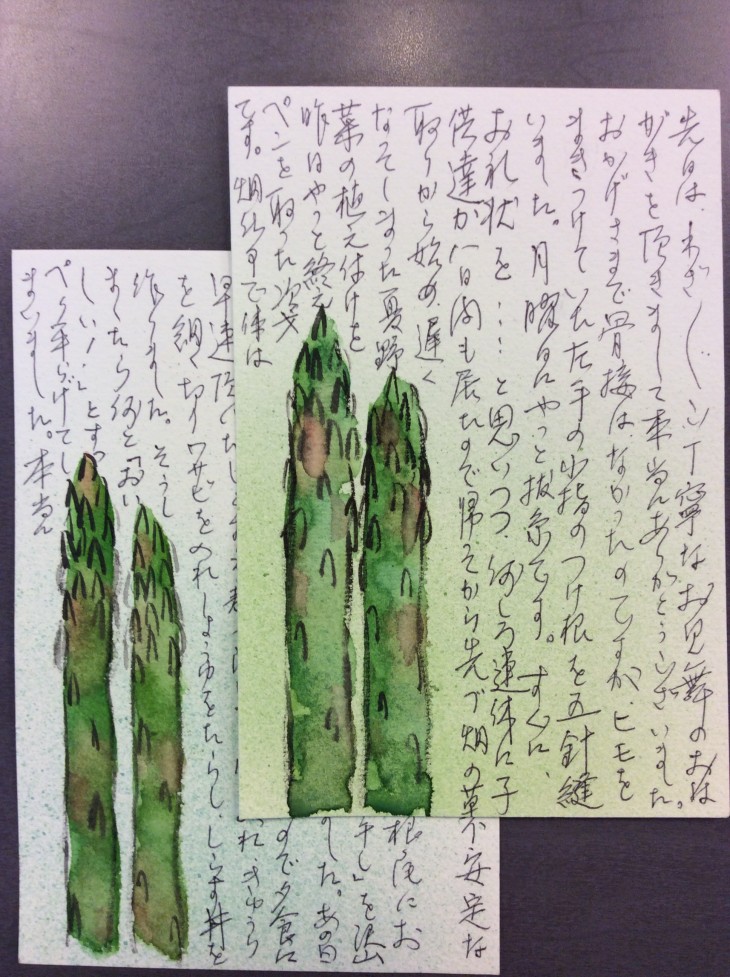 先日は、わざ〱ご丁寧なお見舞のおは
がきを頂きまして本当にありがとうございました。
おかげさまで骨接はなかったのですが、ヒモを
まきつけていた左手の小指のつけ根を五針縫
いました。月曜日にやっと抜糸です。すぐに、
お礼状を‥‥と思いつつ、何しろ連休に子
供達が八日間も居たので帰ってから先づ畑の
取りから始め、遅く
なってしまった夏野
菜の植え付けを
昨日やっと終え
ペンを取った次第
です。畑仕事で体は
にお
干し」を沢山
した。あの日
ので夕食に
早速頂いた
れ、きゅうり
を細く切りワサビを入れしょう油をたらし、しらす丼を
作りました。そうし
ましたら何と「おい
しい!!」とすっ
ペり平らげてし
まいました。本当に